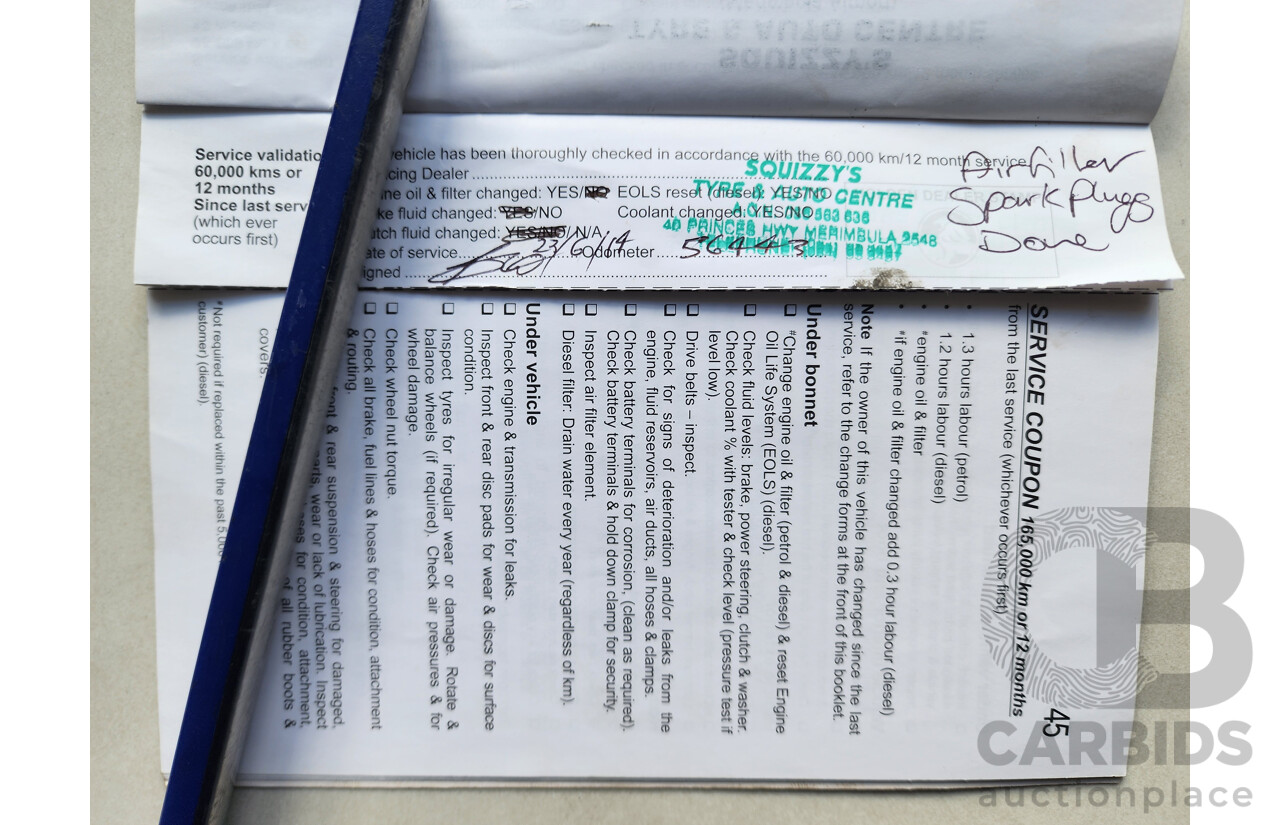 TYRE & AUTO CENTRE
SQUIZZY'S
Service validatio
60,000 kms or
12 months
Since last serv
(which ever
occurs first)
ehicle has been thoroughly checked in accordance with the 60,000 km/12 month service
cing Dealer
ne oil & filter changed: YES/NO EOLS reset (diesel): YES/NO
ke fluid changed: YES/NO Coolant changed: YES/NO
tch fluid changed: YES/NO/N/A
ate of service Odometer 56443
igned
SQUIZZY'S
TYRE & AUTO CENTRE
40 PRINCES HWY MERIMBULA 2548
Airfilter
Spark Plugs
Done
SERVICE COUPON 165,000 km or 12 months
from the last service (whichever occurs first)
45
• 1.3 hours labour (petrol)
• 1.2 hours labour (diesel)
• *engine oil & filter
• *if engine oil & filter changed add 0.3 hour labour (diesel)
Note If the owner of this vehicle has changed since the last
service, refer to the change forms at the front of this booklet.
Under bonnet
❑ *Change engine oil & filter (petrol & diesel) & reset Engine
Oil Life System (EOLS) (diesel).
❑ Check fluid levels: brake, power steering, clutch & washer.
Check coolant % with tester & check level (pressure test if
level low).
❑ Drive belts – inspect.
❑ Check for signs of deterioration and/or leaks from the
engine, fluid reservoirs, air ducts, all hoses & clamps.
❑ Check battery terminals for corrosion, (clean as required).
Check battery terminals & hold down clamp for security.
❑ Inspect air filter element.
❑ Diesel filter: Drain water every year (regardless of km).
Under vehicle
❑ Check engine & transmission for leaks.
❑ Inspect front & rear disc pads for wear & discs for surface
condition.
❑ Inspect tyres for irregular wear or damage. Rotate &
balance wheels (if required). Check air pressures & for
wheel damage.
❑ Check wheel nut torque.
❑ Check all brake, fuel lines & hoses for condition, attachment
& routing.
front & rear suspension & steering for damaged,
parts, wear or lack of lubrication. Inspect
for condition, attachment,
of all rubber boots &
covers.
*Not required if replaced within the past 5,00
customer) (diesel).
CARBIDS
auctionplace